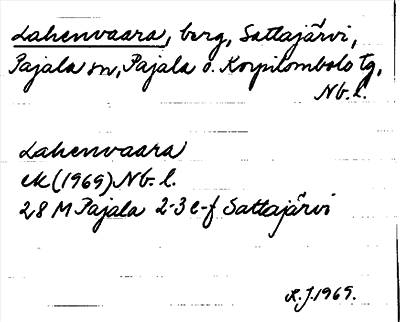 Lahenvaara, berg, Sattajärvi,
Pajala sn, Pajala o. Korpilombolo tg,
Nb. l.
Lahenvaara
ek (1969) Nb. l.
28 M Pajala 2-3 e-f Sattajärvi
R.J. 1969.